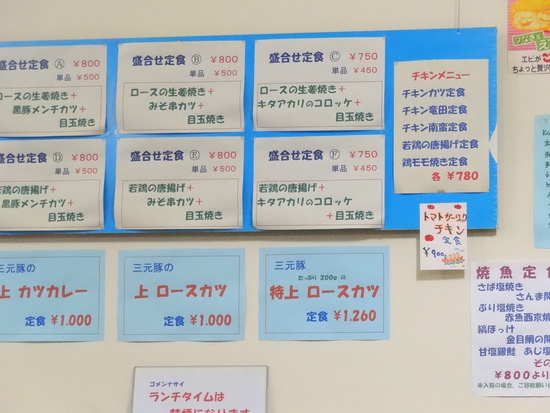 盛合せ定食 Ⓐ ¥800
単品 ¥500
ロースの生姜焼き+
黒豚メンチカツ+
目玉焼き
盛合せ定食 Ⓑ ¥800
単品 ¥500
ロースの生姜焼き+
みそ串カツ+
目玉焼き
盛合せ定食 Ⓒ ¥750
単品 ¥450
ロースの生姜焼き+
キタアカリのコロッケ+
目玉焼き
盛合せ定食 Ⓓ ¥800
単品 ¥500
若鶏の唐揚げ+
黒豚メンチカツ+
目玉焼き
盛合せ定食 Ⓔ ¥800
単品 ¥500
若鶏の唐揚げ+
みそ串カツ+
目玉焼き
盛合せ定食 Ⓕ ¥750
単品 ¥450
若鶏の唐揚げ+
キタアカリのコロッケ
+目玉焼き
チキンメニュー
チキンカツ定食
チキン竜田定食
チキン南蛮定食
若鶏の唐揚げ定食
鶏モモ焼き定食
各 ¥780
トマトガーリック
チキン
定食
¥900
三元豚の
上 カツカレー
定食 ¥1.000
三元豚の
上 ロースカツ
定食 ¥1.000
三元豚
たっぷり 200g の
特上 ロースカツ
定食 ¥1.260
ゴメンナサイ
ランチタイムは
禁煙になります
エビが
ちょっと贅沢
焼魚定
さば塩焼き
さんま開
ぶり塩焼き
赤魚西京焼
縞ほっけ
金目鯛の開
甘塩銀鮭 あじ塩
その
¥800より